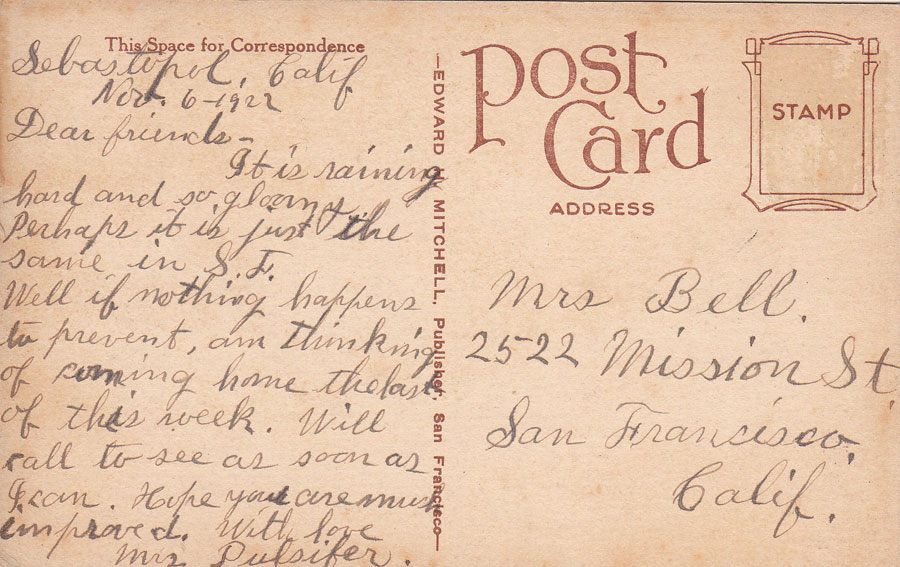 This Space for Correspondence
Sebastopol, Calif
Nov. 6-1922
Dear friends-
It is raining
hard and so gloomy.
Perhaps it is just the
same in S.F.
Well if nothing happens
to prevent, am thinking
of coming home the last
of this week. Will
call to see as soon as
I can. Hope you are much
improved. With love
Mrs Pulsifer.
—EDWARD H MITCHELL, Publisher, San Francisco—
Post
Card
ADDRESS
STAMP
Mrs Bell.
2522 Mission St.
San Francisco,
Calif.